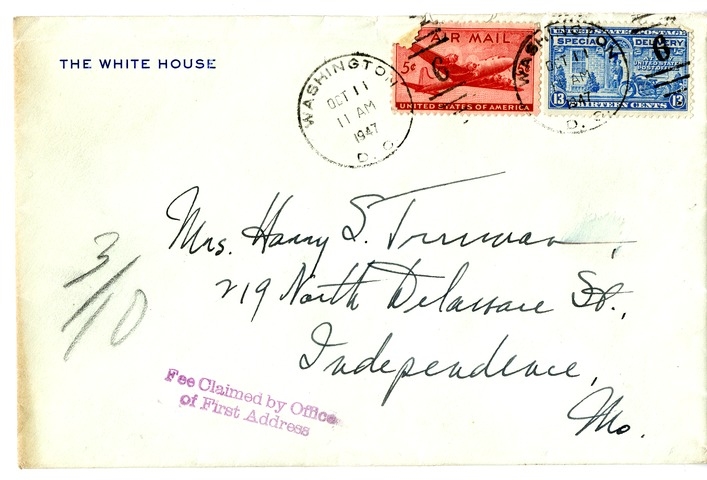 THE WHITE HOUSE
WASHINGTON
OCT 11
11 AM
1947
D. C.
AIR MAIL
5¢
6
UNITED STATES OF AMERICA
WASHINGTON
OCT 11
AM
D. C.
UNITED STATES POSTAGE
SPECIAL DELIVERY
6
UNITED STATES
POST OFFICE
13 THIRTEEN CENTS 13
Mrs. Harry S. Truman,
219 North Delaware St.,
Independence,
Mo.
3/10
Fee Claimed by Office
of First Address